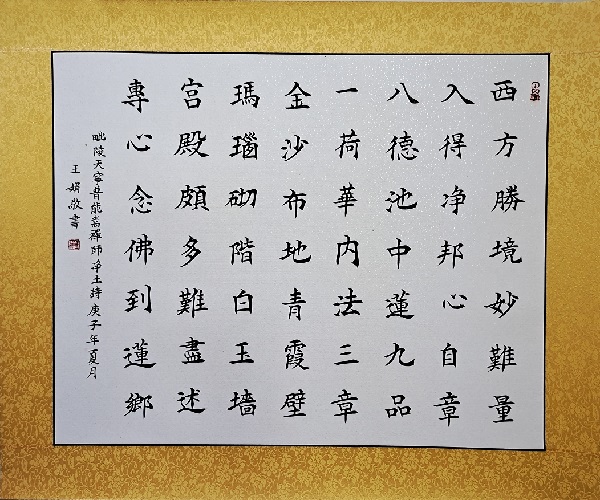 西方勝境妙難量
入得净邦心自章
八德池中蓮九品
一荷華内法三章
金沙布地青霞壁
瑪瑙砌階白玉墻
宮殿頗多難盡述
專心念佛到蓮鄉
毗陵天寧普能嵩禪師净土詩庚子年夏月
王娟敬書